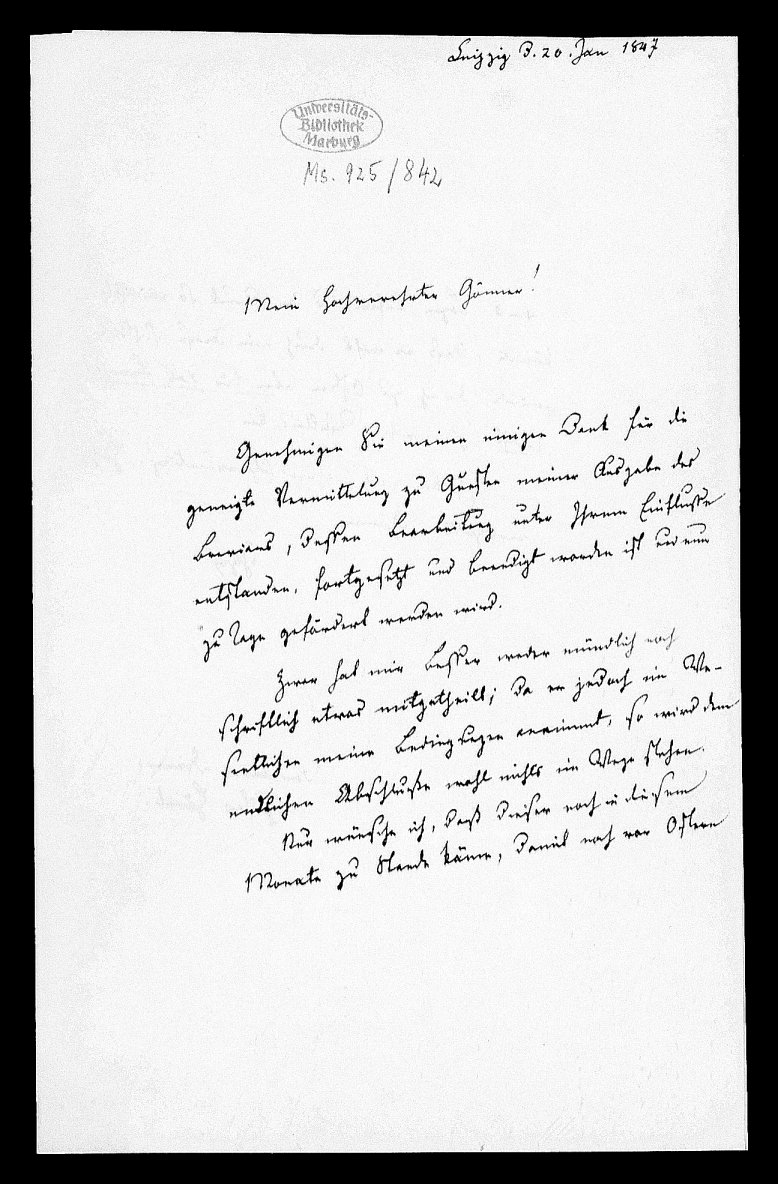 Leipzig d. 20. Jan 1847
Universitäts-
Bibliothek
Marburg
Ms. 925/842
Mein hochverehrter Gönner!
Genehmigen Sie meinen innigen Dank für die
geneigte Vermittelung zu Gunsten meiner Ausgabe des
, dessen Bearbeitung unter Ihrem Einflusse
entstanden, fortgesetzt und beendigt worden ist und nun
zu Tage gefördert werden wird.
Zwar hat mir Besser weder mündlich noch
schriftlich etwas mitgetheilt; da er jedoch im We-
sentlichen meine Bedingungen annimmt, so wird dem
endlichen Abschlusse wohl nichts im Wege stehen.
Nur wünsche ich, daß dieser noch in diesem
Monate zu Stande käme, damit noch vor Ostern